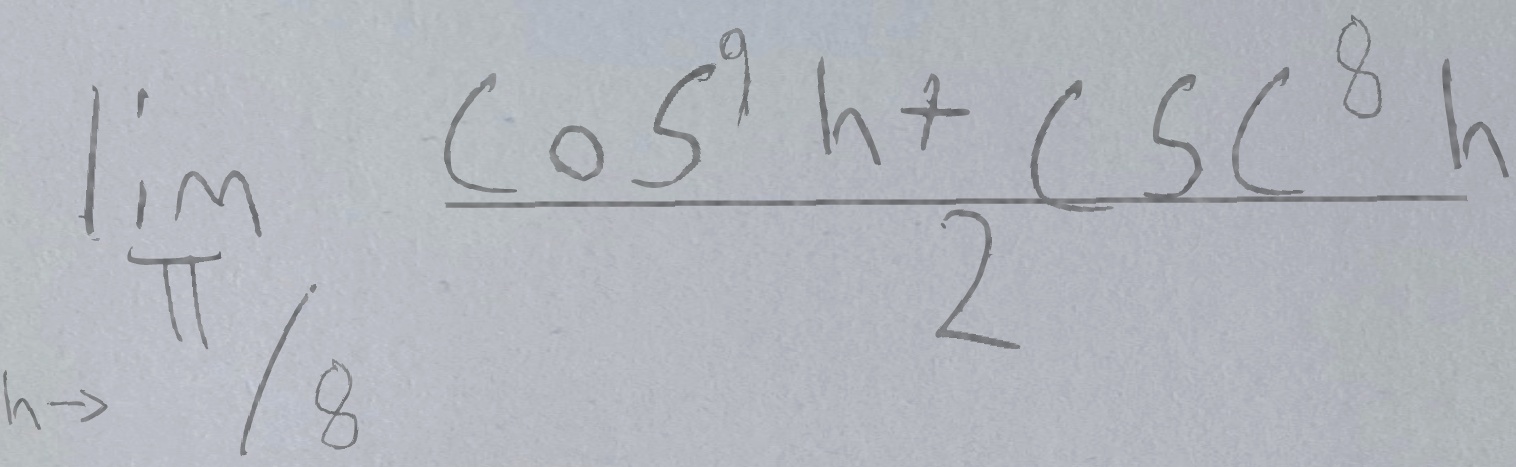 lim h→π/8 (cos⁹ h + csc⁸ h)/2